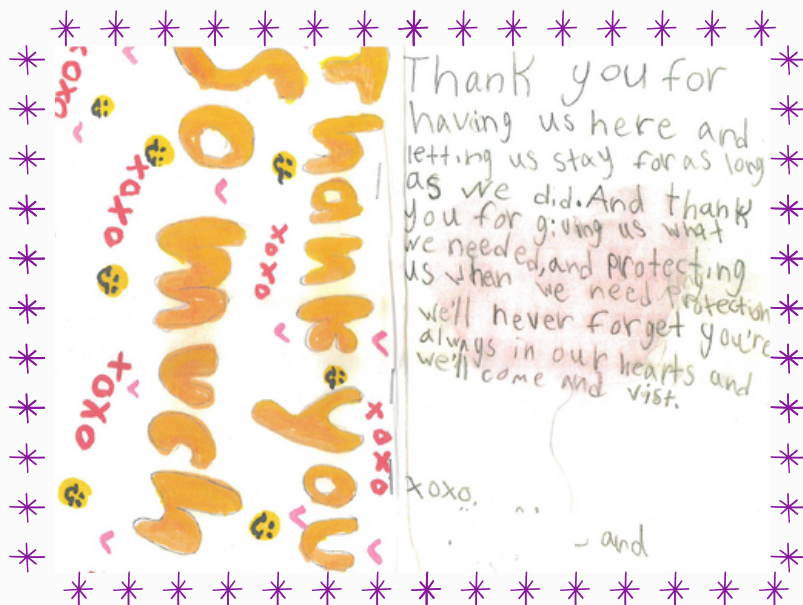 Thank you
so much
xoxo
xoxo
xoxo
xoxo
xoxo
Thank you for
having us here and
letting us stay for as long
as we did. And thank
you for giving us what
we needed, and protecting
us when we need protection
we'll never forget you're
always in our hearts and
we'll come and vist.
xoxo,
and